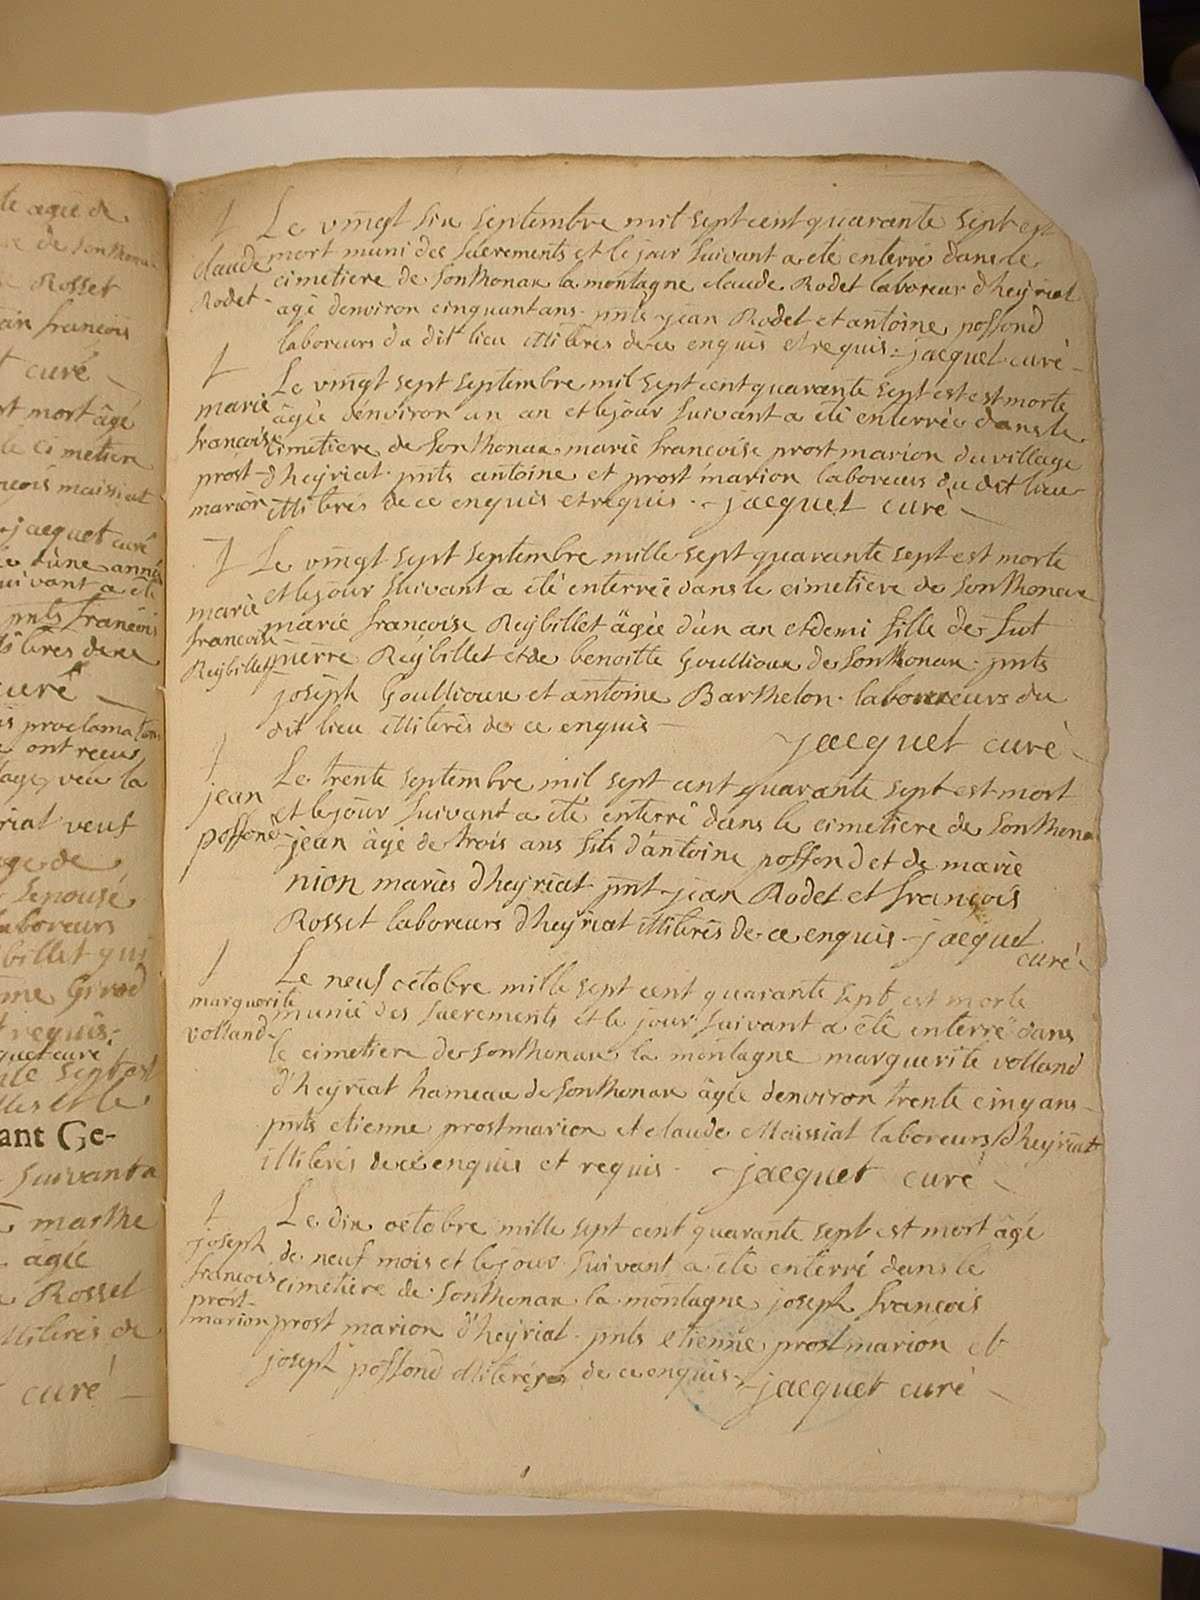 te agée de
de Sonthona
Rosset
francois
curé
mort âgé
cimetiere
ncois maissiat
jacquet curé
d'une année
suivant a été
pnts francois
illiteres de ce
curé
proclamation
ont recus
veu la
veuf
age de
Lepouse
laboreurs
billet qui
Girod
requis
quet curé
et le
ant Ge-
suivant a
marthe
âgée
Rosset
illiterés de
curé
Le vingt six septembre mil sept cent quarante sept est
claude
Rodet
mort muni des sacrements et le jour suivant a été enterré dans le
cimetiere de sonthonax la montagne claude Rodet laboreur d'heyriat
agé denviron cinquant ans pnts jean Rodet et antoine possond
laboreurs du dit lieu illiterés de ce enquis et requis jacquet curé
marie
francoise
prost
marion
Le vingt sept septembre mil sept cent quarante sept est est morte
âgée dénviron un an et le jour suivant a été enterrée dans le
cimetiere de Sonthonax marie francoise prost marion du village
d'heyriat pnts antoine et prost marion laboreurs du dit lieu
illiterés de ce enquis et requis jacquet curé
marie
francoise
Reybillet
Le vingt sept septembre mille sept quarante sept est morte
et le jour suivant a été enterrée dans le cimetiere de Sonthonax
marie francoise Reybillet âgée d'un an et demi fille de fut
pierre Reybillet et de benoitte Goullioux de Sonthonax pnts
joseph Goullioux et antoine Barthelon laboureurs du
dit lieu illiterés de ce enquis
jacquet curé
jean
possond
Le trente septembre mil sept cent quarante sept est mort
et le jour suivant a été enterré dans le cimetiere de Sonthona
jean âgé de trois ans fils d'antoine possond et de marie
nion mariés d'heyriat pnt jean Rodet et francois
Rosset laboreurs d'heyriat illiterés de ce enquis jacquet
curé
marguerite
volland
Le neuf octobre mille sept cent quarante sept est morte
munie des sacrements et le jour suivant a été enterré dans
le cimetiere de Sonthonax la montagne marguerite volland
d'heyriat hameau de Sonthonax âgée denviron trente cinq ans
pnts etienne prost marion et claude Maissiat laboreurs d'heyriat
illiterés de ce enquis et requis jacquet curé
joseph
francois
prost
marion
Le dix octobre mille sept cent quarante sept est mort âgé
de neuf mois et le jour suivant a été enterré dans le
cimetiere de Sonthonax la montagne joseph francois
prost marion d'heyriat pnts etienne prost marion et
joseph possond illiterés de ce enquis jacquet curé